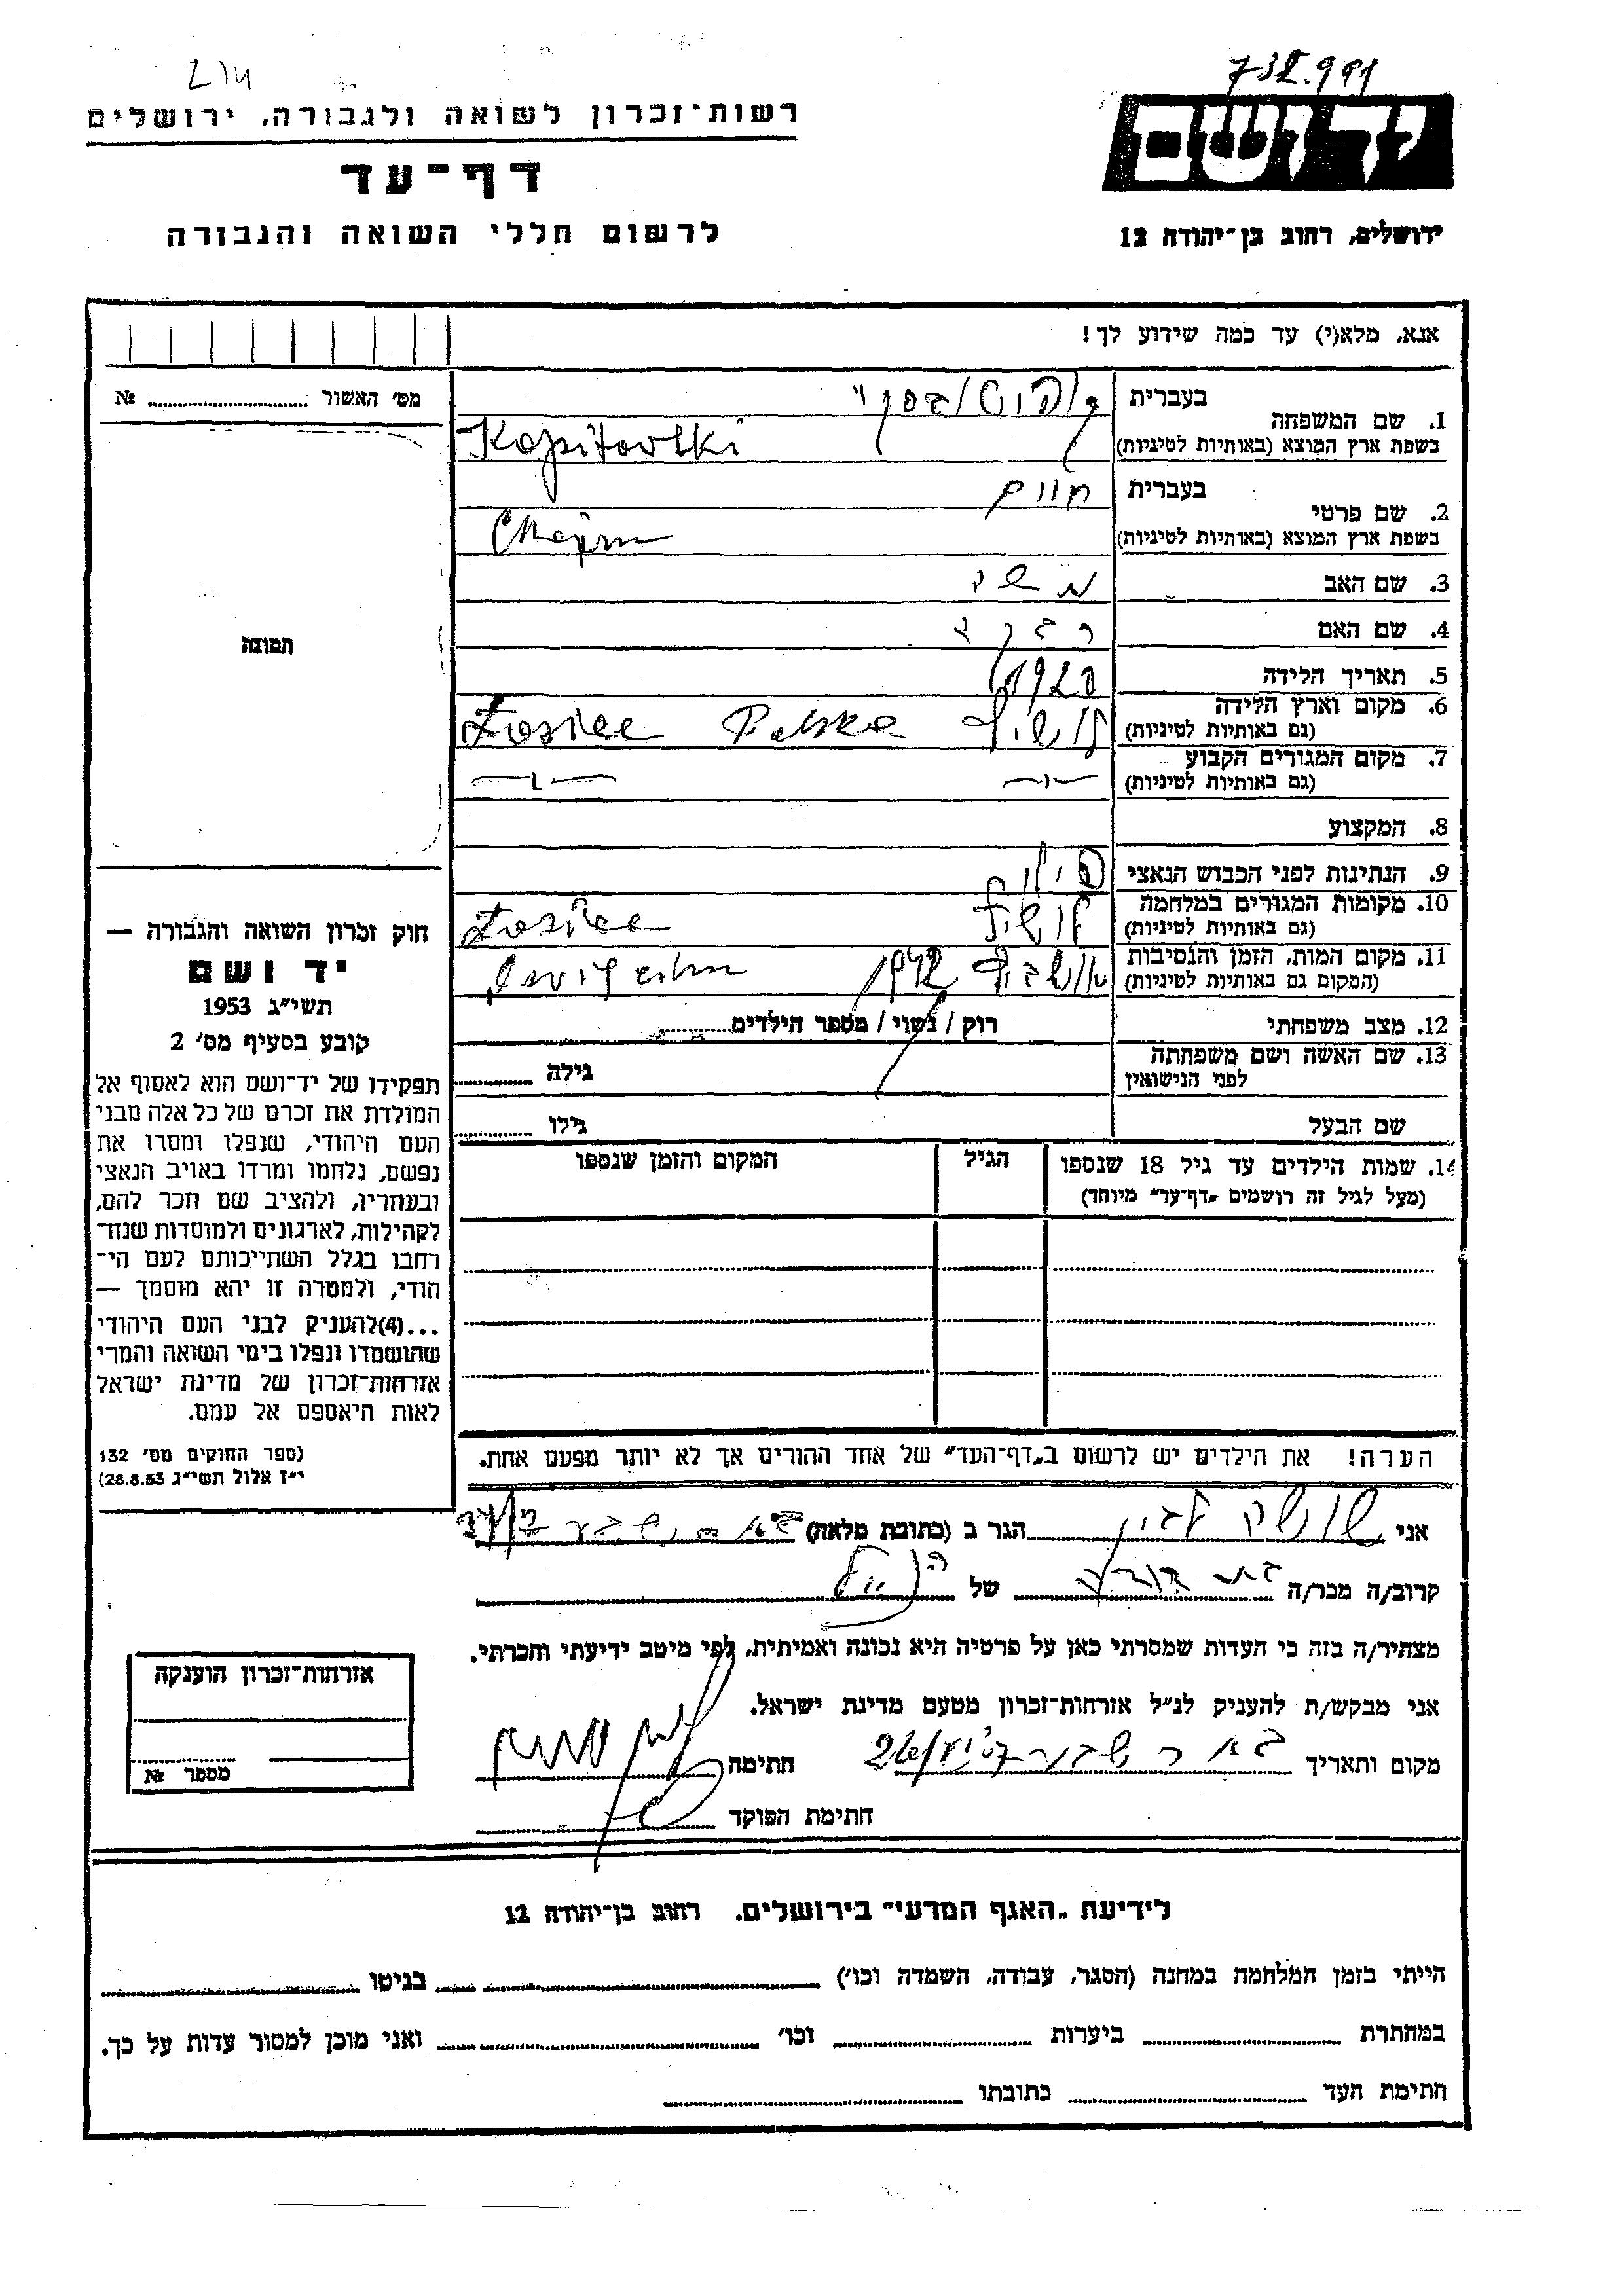 214
רשות־זכרון לשואה ולגבורה, ירושלים
דף־עד
לרשום חללי השואה והגבורה
יד ושם
ירושלים, רחוב בן־יהודה 12
אנא, מלא(י) עד כמה שידוע לך!
מס' האשור № 
תמונה
1. שם המשפחה
בעברית קופיטובסקי
בשפת ארץ המוצא (באותיות לטיניות) Kopitovski
2. שם פרטי
בעברית חיים
בשפת ארץ המוצא (באותיות לטיניות) Chajm
3. שם האב משה
4. שם האם
5. תאריך הלידה 1920
6. מקום וארץ הלידה
(גם באותיות לטיניות) לושיץ Polska Łosice
7. מקום המגורים הקבוע
(גם באותיות לטיניות) —ו— —ו—
8. המקצוע
9. הנתינות לפני הכבוש הנאצי פולין
10. מקומות המגורים במלחמה
(גם באותיות לטיניות) לושיץ Łosice
11. מקום המות, הזמן והנסיבות
(המקום גם באותיות לטיניות) 1942
12. מצב משפחתי רוק / נשוי / מספר הילדים
13. שם האשה ושם משפחתה
לפני הנישואין גילה
שם הבעל גילו
14. שמות הילדים עד גיל 18 שנספו הגיל המקום והזמן שנספו
(מעל לגיל זה רושמים „דף־עד" מיוחד)
הערה! את הילדים יש לרשום ב„דף־העד" של אחד ההורים אך לא יותר מפעם אחת.
חוק זכרון השואה והגבורה —
יד ושם
תשי"ג 1953
קובע בסעיף מס' 2
תפקידו של יד־ושם הוא לאסוף אל
המולדת את זכרם של כל אלה מבני
העם היהודי, שנפלו ומסרו את
נפשם, נלחמו ומרדו באויב הנאצי
ובעוזריו, ולהציב שם וזכר להם,
לקהילות, לארגונים ולמוסדות שנח־
רבו בגלל השתייכותם לעם הי־
הודי, ולמטרה זו יהא מוסמך —
...(4)להעניק לבני העם היהודי
שהושמדו ונפלו בימי השואה והמרי
אזרחות־זכרון של מדינת ישראל
לאות היאספם אל עמם.
(ספר החוקים מס' 132
י"ז אלול תשי"ג 28.8.53)
אני הגר ב (כתובת מלאה) באר שבע
קרוב/ה מכר/ה של הנ"ל
מצהיר/ה בזה כי העדות שמסרתי כאן על פרטיה היא נכונה ואמיתית, לפי מיטב ידיעתי והכרתי.
אני מבקש/ת להעניק לנ"ל אזרחות־זכרון מטעם מדינת ישראל.
מקום ותאריך באר שבע חתימה
חתימת הפוקד
אזרחות־זכרון הוענקה
מספר №
לידיעת „האגף המדעי" בירושלים. רחוב בן־יהודה 12
הייתי בזמן המלחמה במחנה (הסגר, עבודה, השמדה וכו') בגיטו
במחתרת ביערות וכו' ואני מוכן למסור עדות על כך.
חתימת העד כתובתו